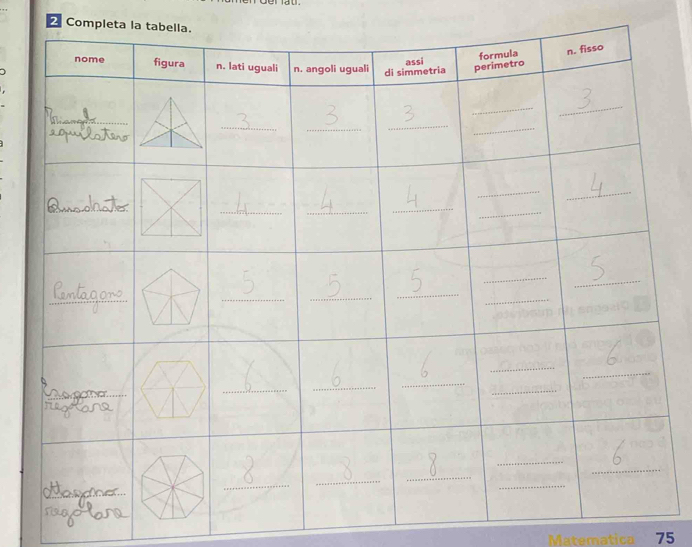 2 Completa la tabella.
nome figura n. lati uguali n. angoli uguali assi di simmetria formula perimetro n. fisso
equilatero 3 3 3 3
Quadrato 4 4 4 4
Pentagono 5 5 5 5
6 6 6 6
regolare
8 8 8 6
regolare
Matematica 75